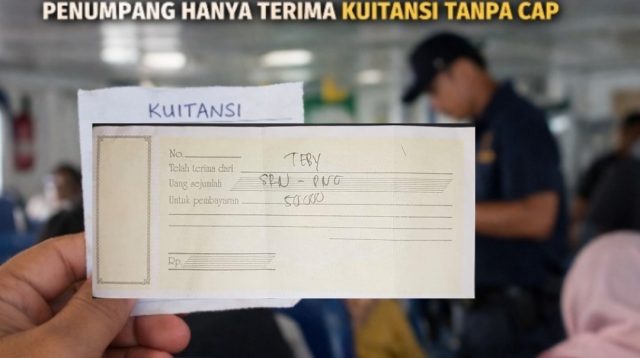 PENUMPANG HANYA TERIMA KUITANSI TANPA CAP
KUITANSI
No. TERY
Telah terima dari
Uang sejumlah SRN - PNG
Untuk pembayaran 50.000
Rp.